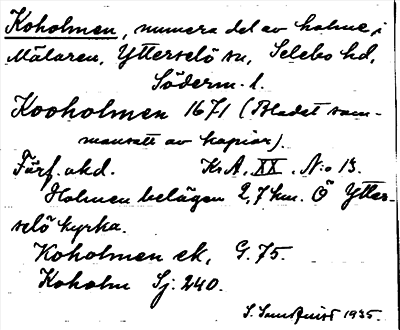 Koholmen, numera del av holme i
Mälaren, Ytterselö sn, Selebo hd,
Söderm. l.
Kooholmen 1671 (Bladet sam-
mansatt av kopior).
Förf. okd. Kr.A. XX. N:o 13.
Holmen belägen 2,7 km. Ö Ytter-
selö kyrka.
Koholmen ek, G. 75.
Koholm Sj. 240.
S. 1935.